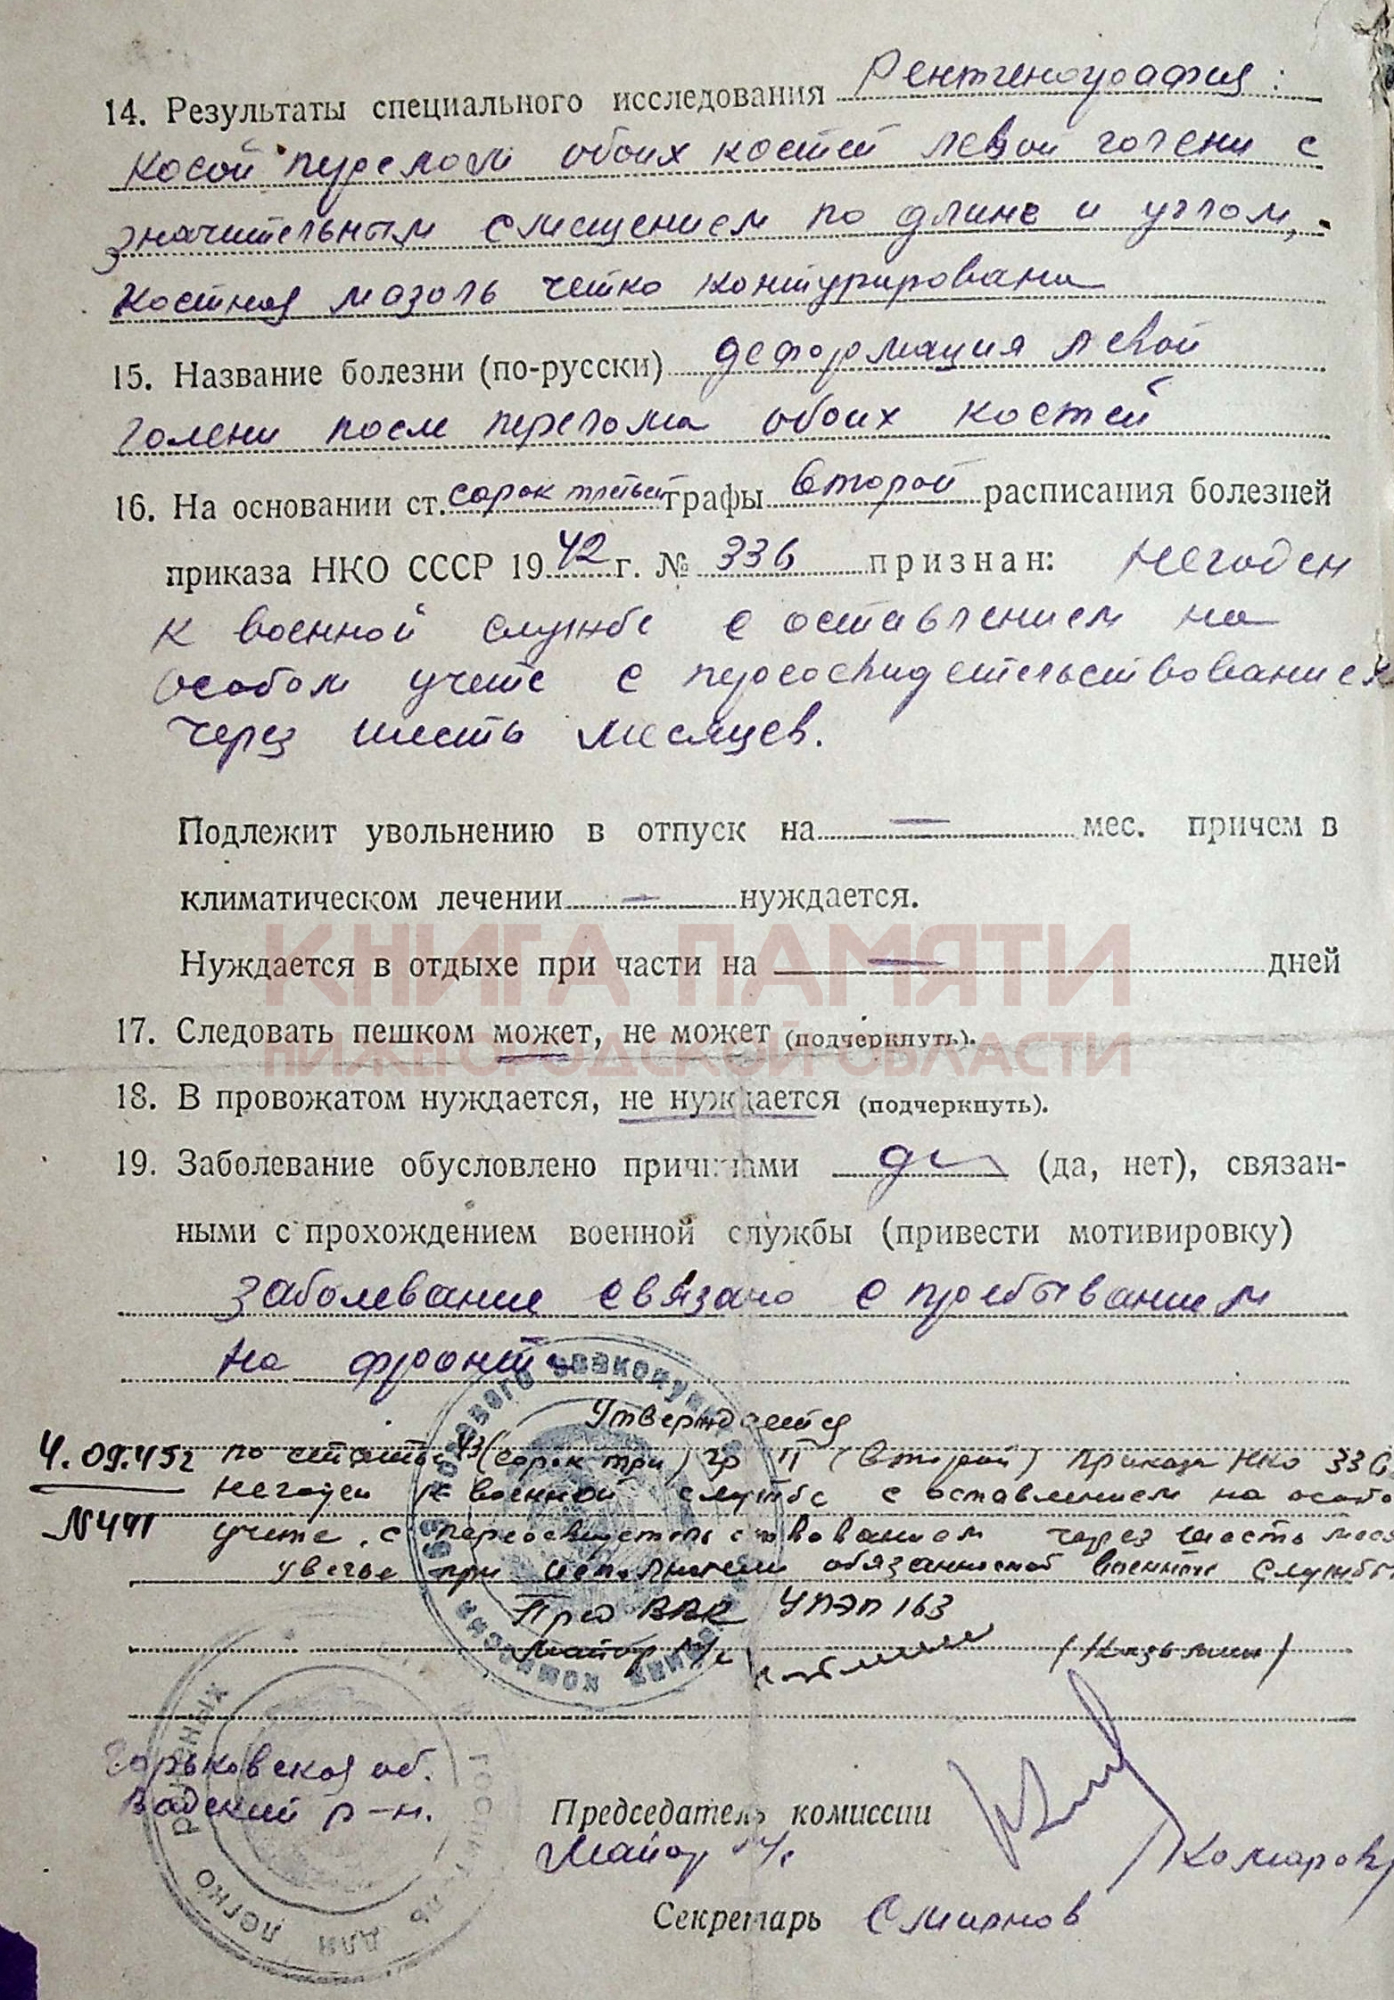 14. Результаты специального исследования Рентгенография:
косой перелом обоих костей левой голени с
значительным смещением по длине и углом,
костная мазоль четко контурирована
15. Название болезни (по-русски) деформация левой
голени после перелома обоих костей
16. На основании ст. сорок третьей графы второй расписания болезней
приказа НКО СССР 1942 г. № 336 признан: негоден
к военной службе с оставлением на
особом учете с переосвидетельствованием
через шесть месяцев.
Подлежит увольнению в отпуск на — мес. причем в
климатическом лечении — нуждается.
Нуждается в отдыхе при части на — дней
КНИГА ПАМЯТИ
НИЖЕГОРОДСКОЙ ОБЛАСТИ
17. Следовать пешком может, не может (подчеркнуть).
18. В провожатом нуждается, не нуждается (подчеркнуть).
19. Заболевание обусловлено причинами да (да, нет), связан-
ными с прохождением военной службы (привести мотивировку)
заболевание связано с пребыванием
на фронте
Утверждается
4.09.45г по статье 43 (сорок три) гр II (второй) приказа НКО 336
негоден к военной службе с оставлением на особо
№ 441 учете с переосвидетельствованием через шесть мес
увечье при исполнении обязанностей военной службы
Пред ВВК УПЭП 163
майор м/с
Горьковская об.
Вадский р-н.
Председатель комиссии
Майор м/с Комаров
Секретарь Смирнов
ГОСПИТАЛЬ ДЛЯ ЛЕГКО РАНЕНЫХ